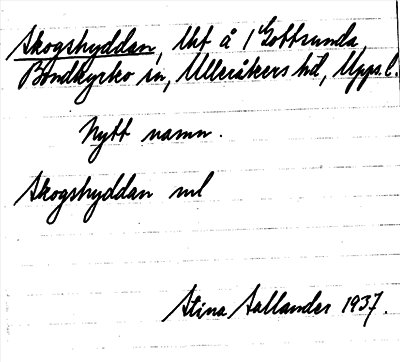 Skogshyddan, lht å 1 Gottsunda
Bondkyrko sn, Ulleråkers hd, Upps. l.
Nytt namn.
Skogshyddan ml
Stina Aallander 1937.